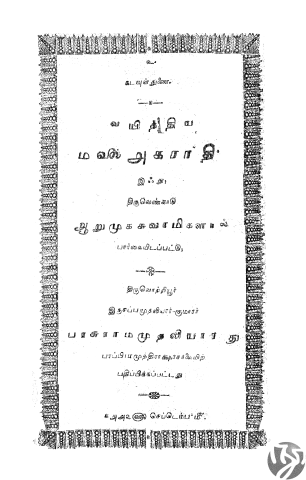 உ
கடவுள்துணை.
வயித்திய
மலை அகராதி.
இஃது
திருவெண்காடு
ஆறுமுகசுவாமிகளால்
பார்வையிடப்பட்டு,
திருவொற்றியூர்
குமாரர்
பரசுராமமுதலியாரது
பதிப்பிக்கப்பட்டது
செப்டெம்பர்